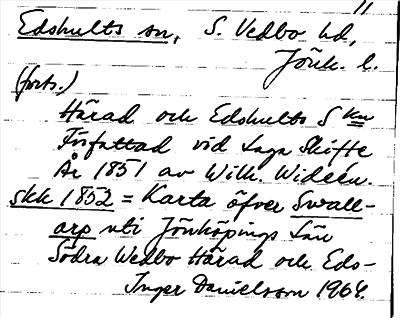 11
Edshults sn, S. Vedbo hd,
Jönk. l.
(forts.)
Härad och Edshults Skn
Författad vid Laga Skifte
År 1851 av Wilh. Widéen.
skk 1852 = Karta öfver Svall-
arp uti Jönköpings Län
Södra Wedbo Härad och Eds-
Inger Danielsson 1964.